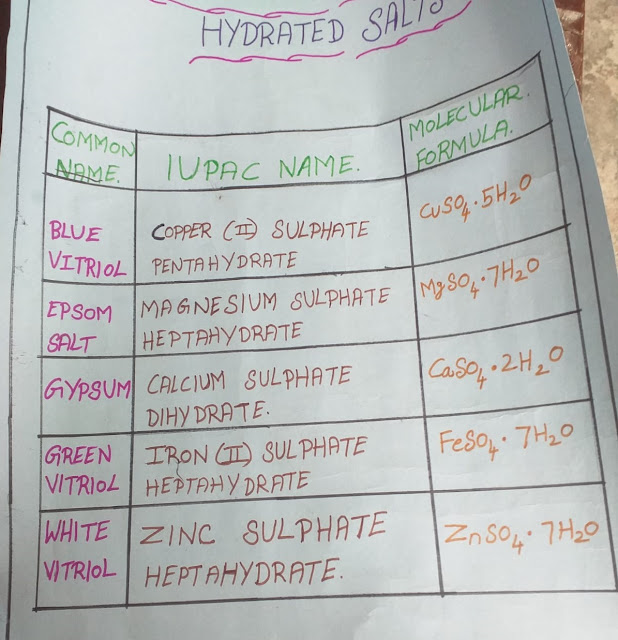 HYDRATED SALTS
COMMON
NAME.
IUPAC NAME.
MOLECULAR.
FORMULA.
BLUE
VITRIOL
COPPER (II) SULPHATE
PENTAHYDRATE
CuSO₄·5H₂O
EPSOM
SALT
MAGNESIUM SULPHATE
HEPTAHYDRATE
MgSO₄·7H₂O
GYPSUM
CALCIUM SULPHATE
DIHYDRATE.
CaSO₄·2H₂O
GREEN
VITRIOL
IRON (II) SULPHATE
HEPTAHYDRATE
FeSO₄·7H₂O
WHITE
VITRIOL
ZINC SULPHATE
HEPTAHYDRATE.
ZnSO₄·7H₂O